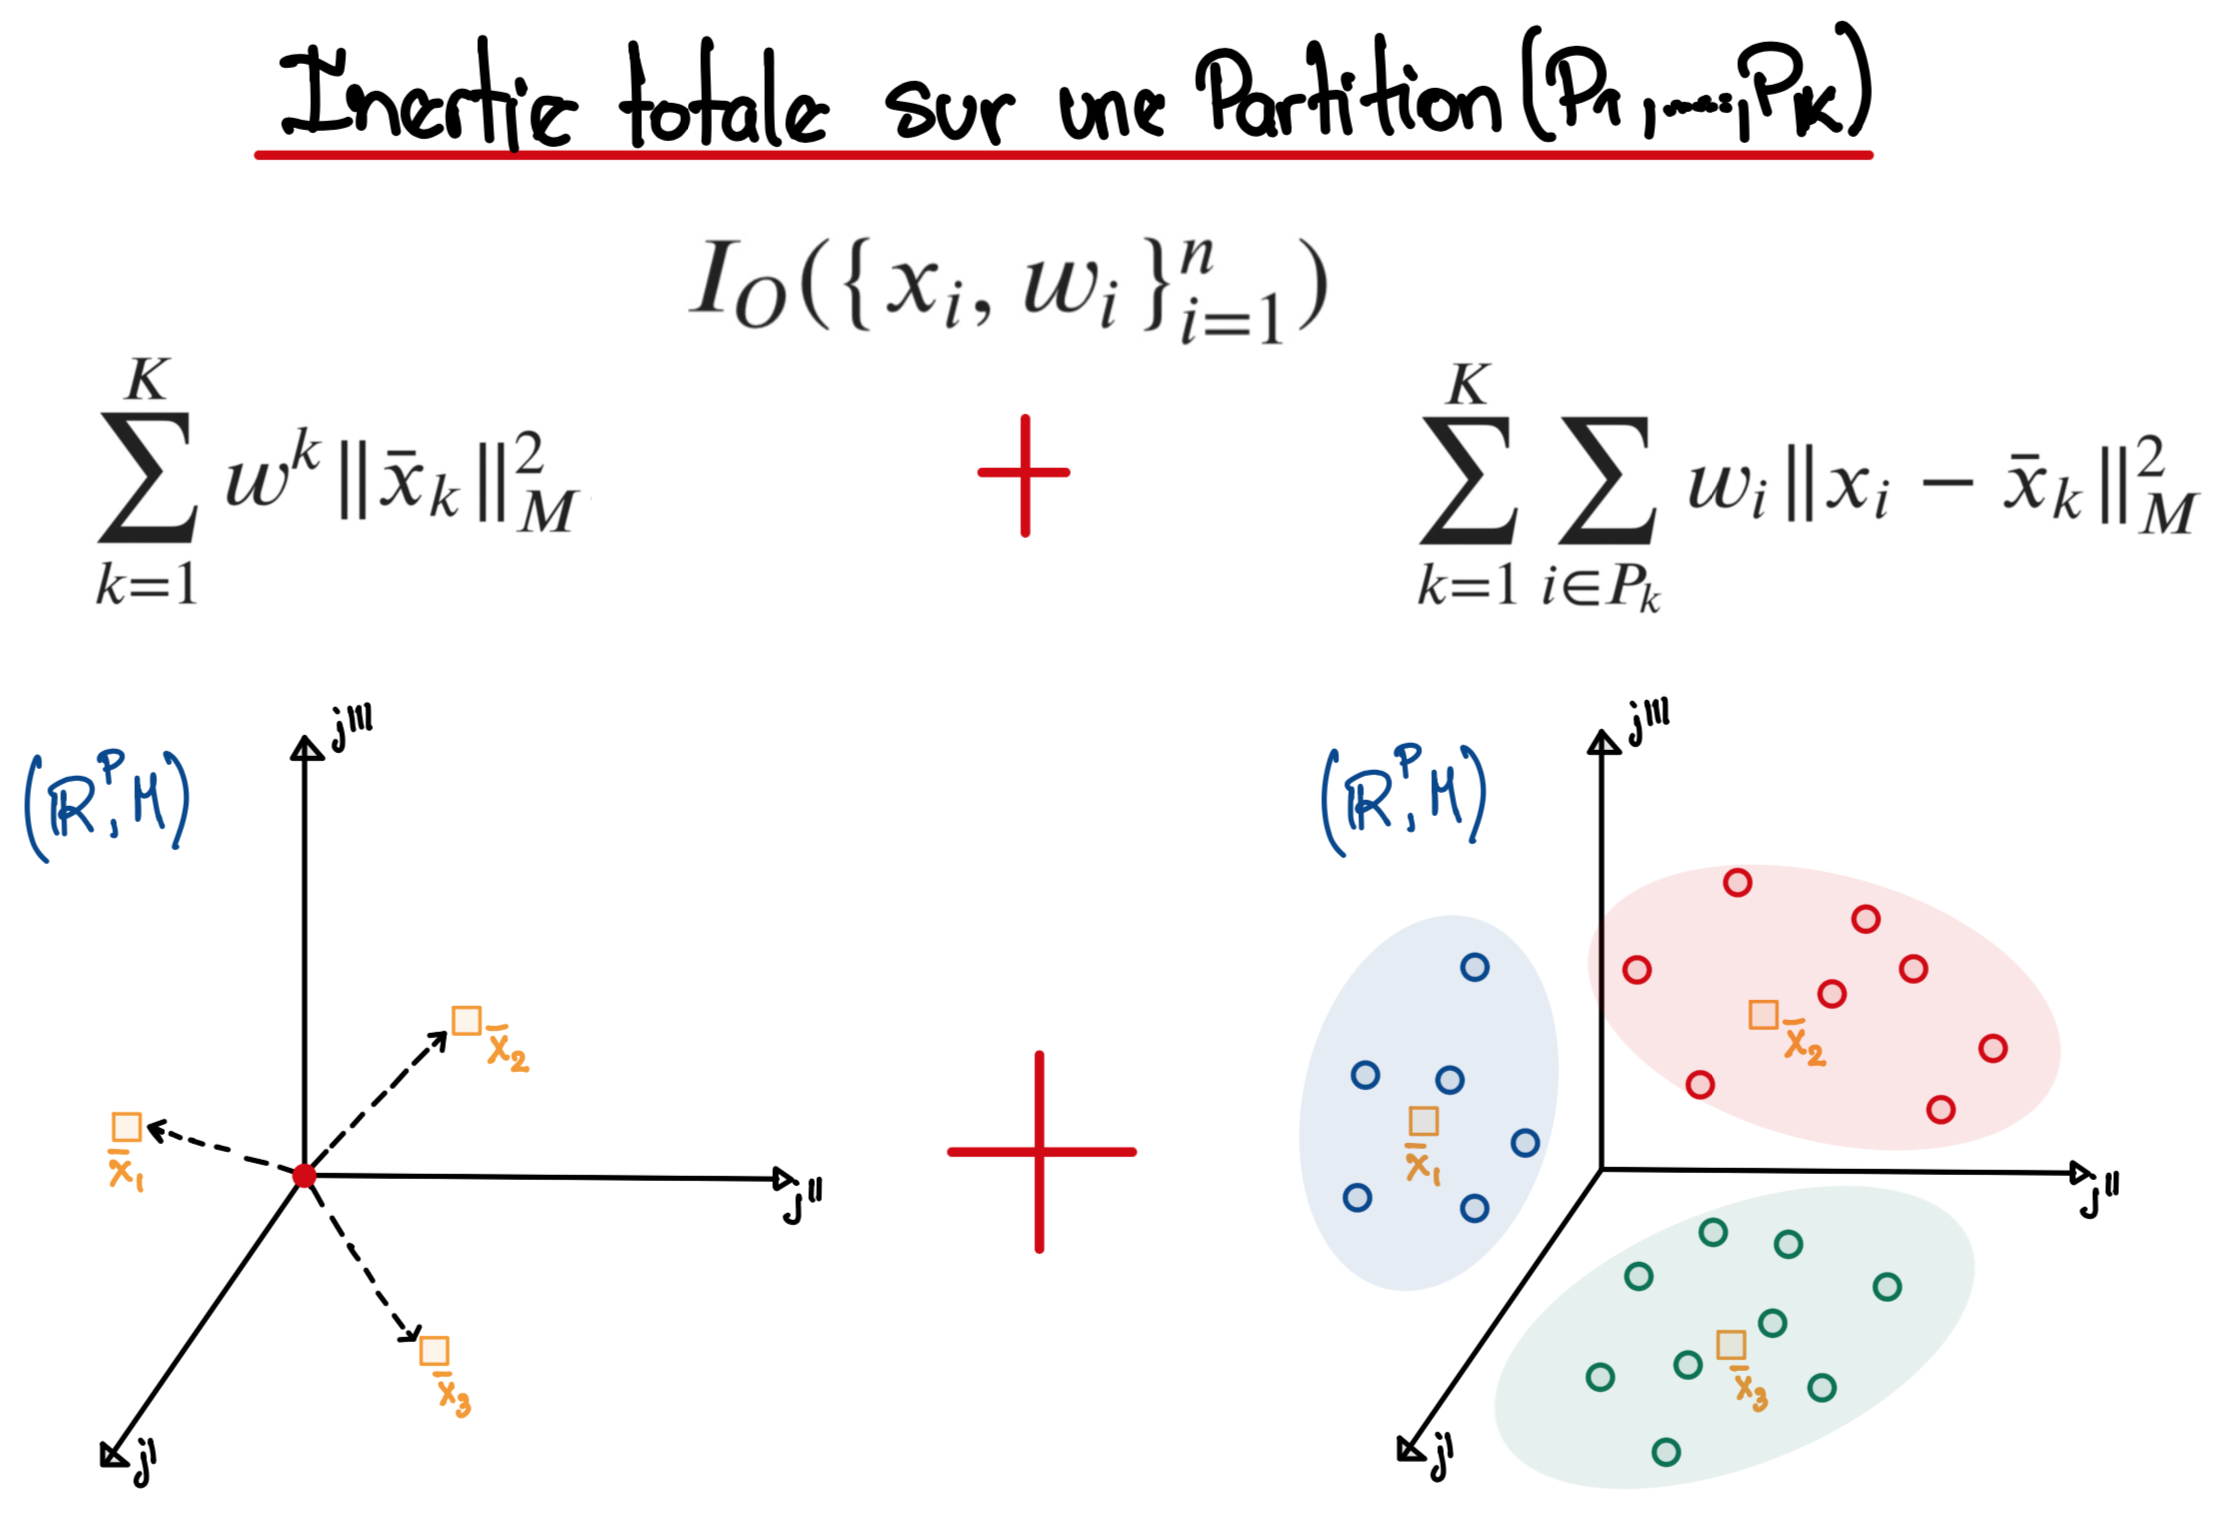 Inertie totale sur une Partition (P1,...,PK)
I_O({x_i, w_i}_{i=1}^n)
\sum_{k=1}^{K} w^k \|\bar{x}_k\|_M^2 + \sum_{k=1}^{K} \sum_{i∈P_k} w_i \|x_i − \bar{x}_k\|_M^2
(ℝ^P, M)
j'''
j''
j'
x̄_1
x̄_2
x̄_3
+
(ℝ^P, M)
j'''
j''
j'
x̄_1
x̄_2
x̄_3